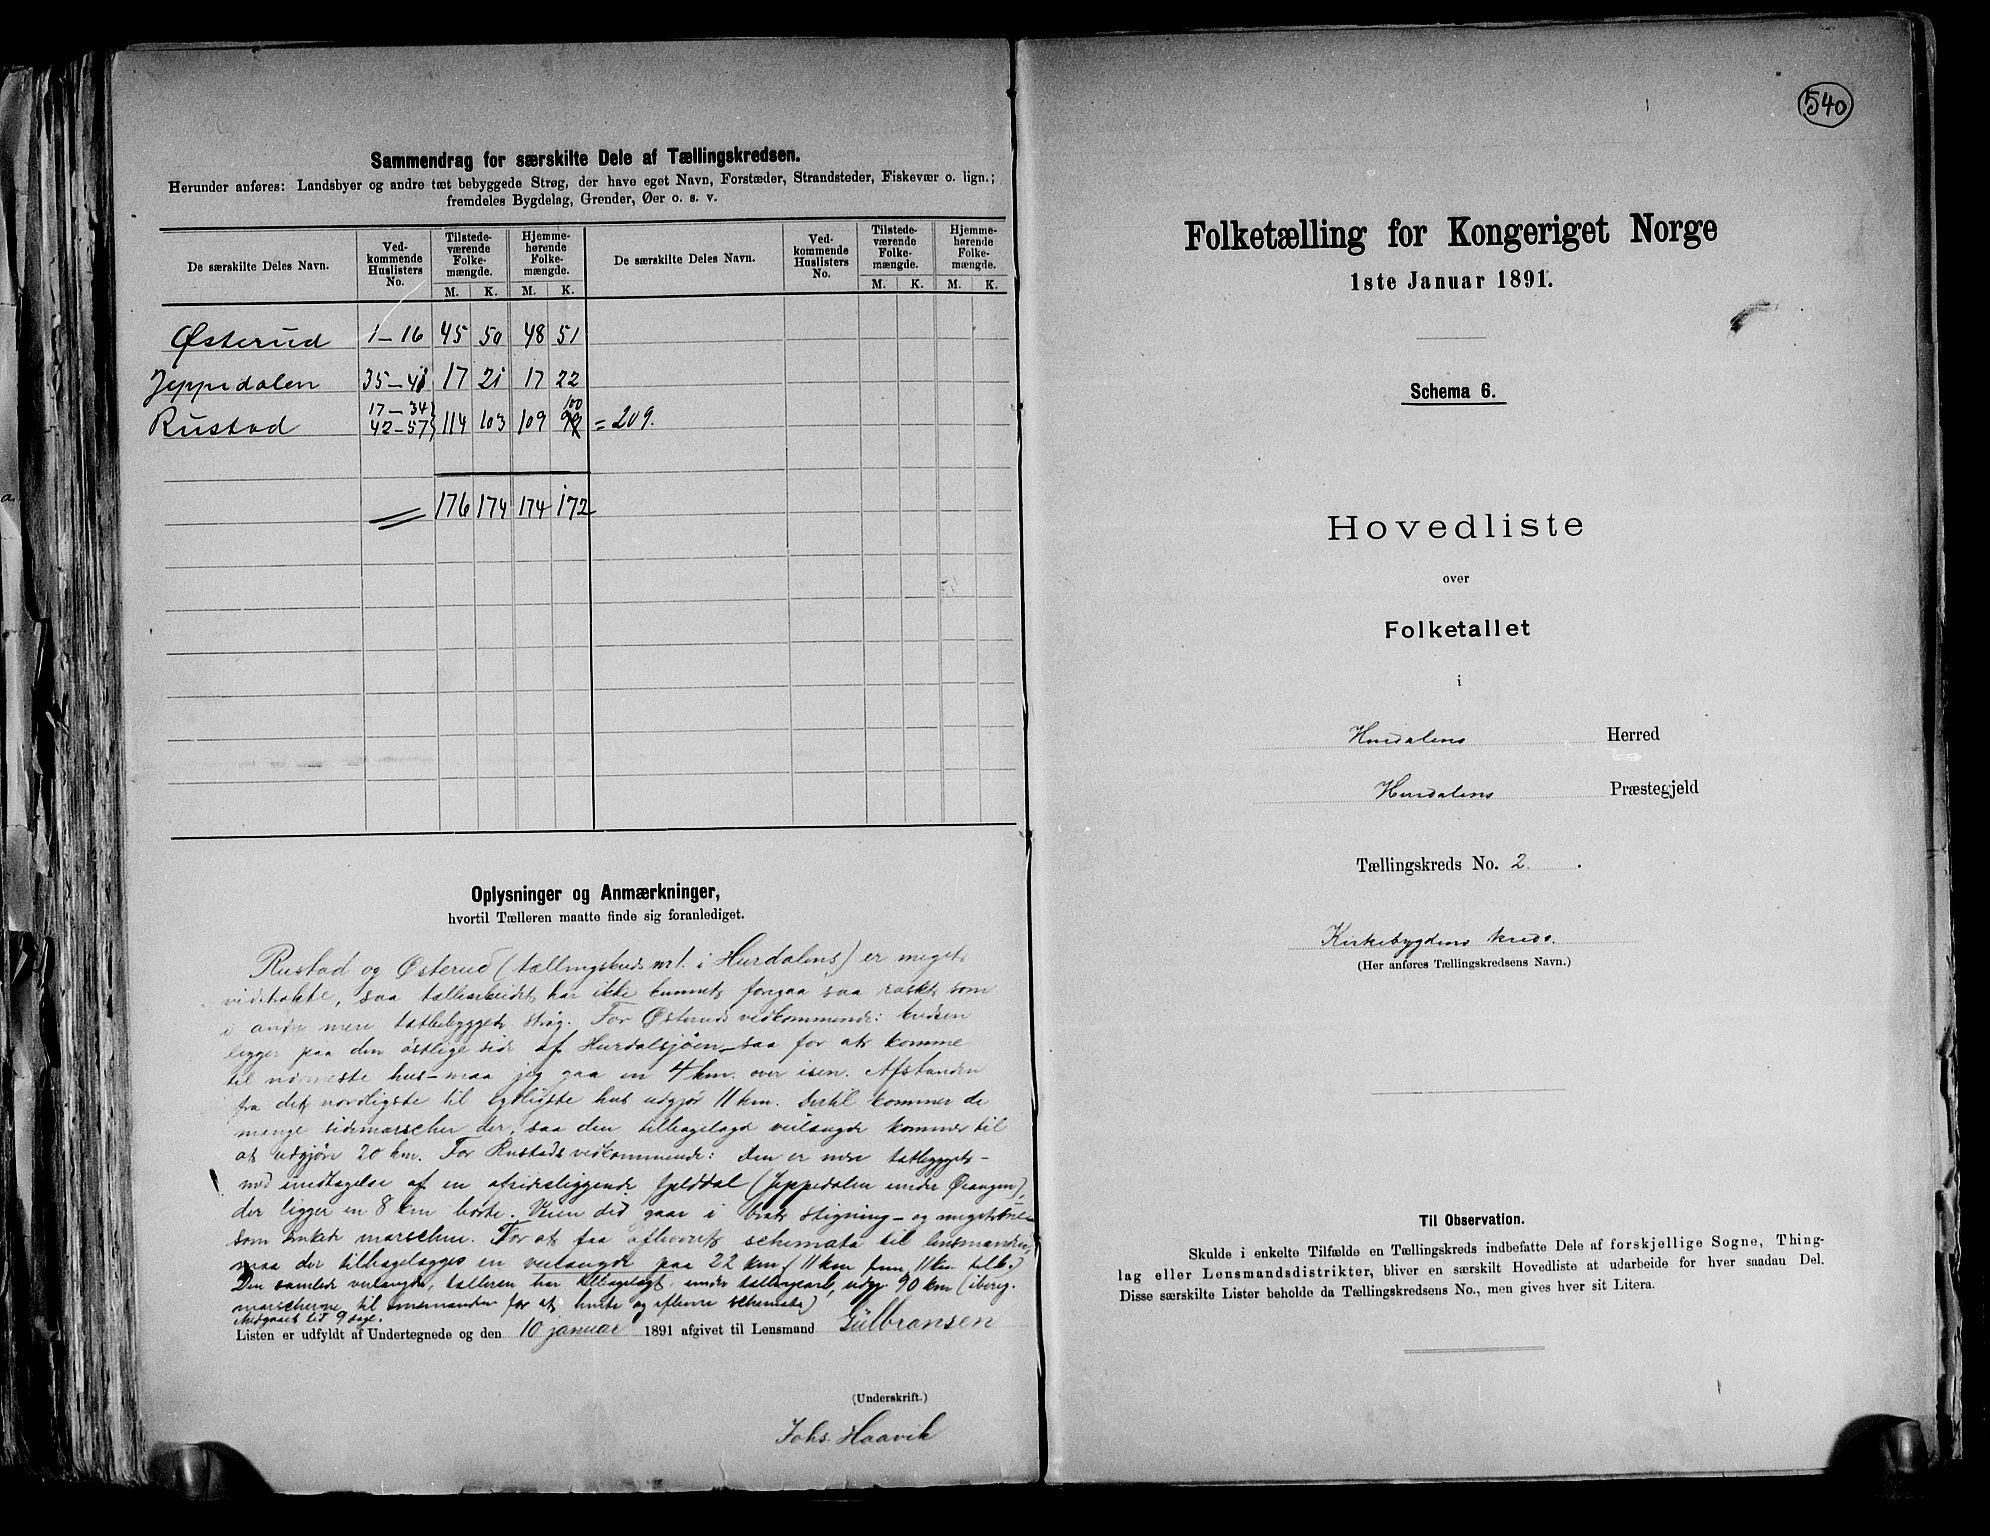 Sammendrag for særskilte Dele af Tællingskredsen.
Herunder anføres: Landsbyer og andre tæt bebyggede Strøg, der have eget Navn, Forstæder, Strandsteder, Fiskevær o. lign.;
fremdeles Bygdelag, Grender, Øer o. s. v.
De særskilte Deles Navn. Ved-kommende Huslisters No. Tilstede-værende Folke-mængde. Hjemme-hørende Folke-mængde. De særskilte Deles Navn. Ved-kommende Huslisters No. Tilstede-værende Folke-mængde. Hjemme-hørende Folke-mængde.
M. K. M. K. M. K. M. K.
Østerud 1-16 45 50 48 51
Jeppedalen 35-41 17 21 17 22
Rustad 17-34 42-57 114 103 109 100 = 209.
176 174 174 172
Oplysninger og Anmærkninger,
hvortil Tælleren maatte finde sig foranlediget.
Rustad og Østerud (tællingskreds nr 1. i Hurdalens) er meget
vidstrakte, saa tællearbeidet har ikke kunnet foregaa saa raskt som
i andre mere tætbebyggede strøg. For Østeruds vedkommende: kredsen
ligger paa den østlige side af Hurdalsjøen, saa for at komme
til nærmeste hus - maa jeg gaa en 4 km. over isen. Afstanden
fra det nordligste til sydligste hus udgjør 11 km. Dertil kommer de
mange sidemarscher der, saa den tilbagelagd veilængde kommer til
at udgjøre 20 km. For Rustads vedkommende: den er mere tætbygget -
med undtagelse af en afsidesliggende fjelddal (Jeppedalen underØrangen),
der ligger en 8 km borte. Veien did gaar i brat stigning - og meget
som enkelt marscher. For at faa afleveret schemata til lensmanden,
maa der tilbagelægges en veilængde paa 22 km. (11 km frem, 11 km tilb.)
Den samlede veilængde, tælleren har tilbagelagt under tællingen, udgj. 90 km (iberegn.
marscherne til lensmanden for at hente og aflevre schemata)
Medgaaet tid 9 dage.
Listen er udfyldt af Undertegnede og den 10 januar 1891 afgivet til Lensmand Gulbransen
(Underskrift.)
Johs. Haavik
540
Folketælling for Kongeriget Norge
1ste Januar 1891.
Schema 6.
Hovedliste
over
Folketallet
i
Hurdalens Herred
Hurdalens Præstegjeld
Tællingskreds No. 2.
Kirkebygdens kreds.
(Her anføres Tællingskredsens Navn.)
Til Observation.
Skulde i enkelte Tilfælde en Tællingskreds indbefatte Dele af forskjellige Sogne, Thing-
lag eller Lensmandsdistrikter, bliver en særskilt Hovedliste at udarbeide for hver saadan Del.
Disse særskilte Lister beholde da Tællingskredsens No., men gives hver sit Litera.